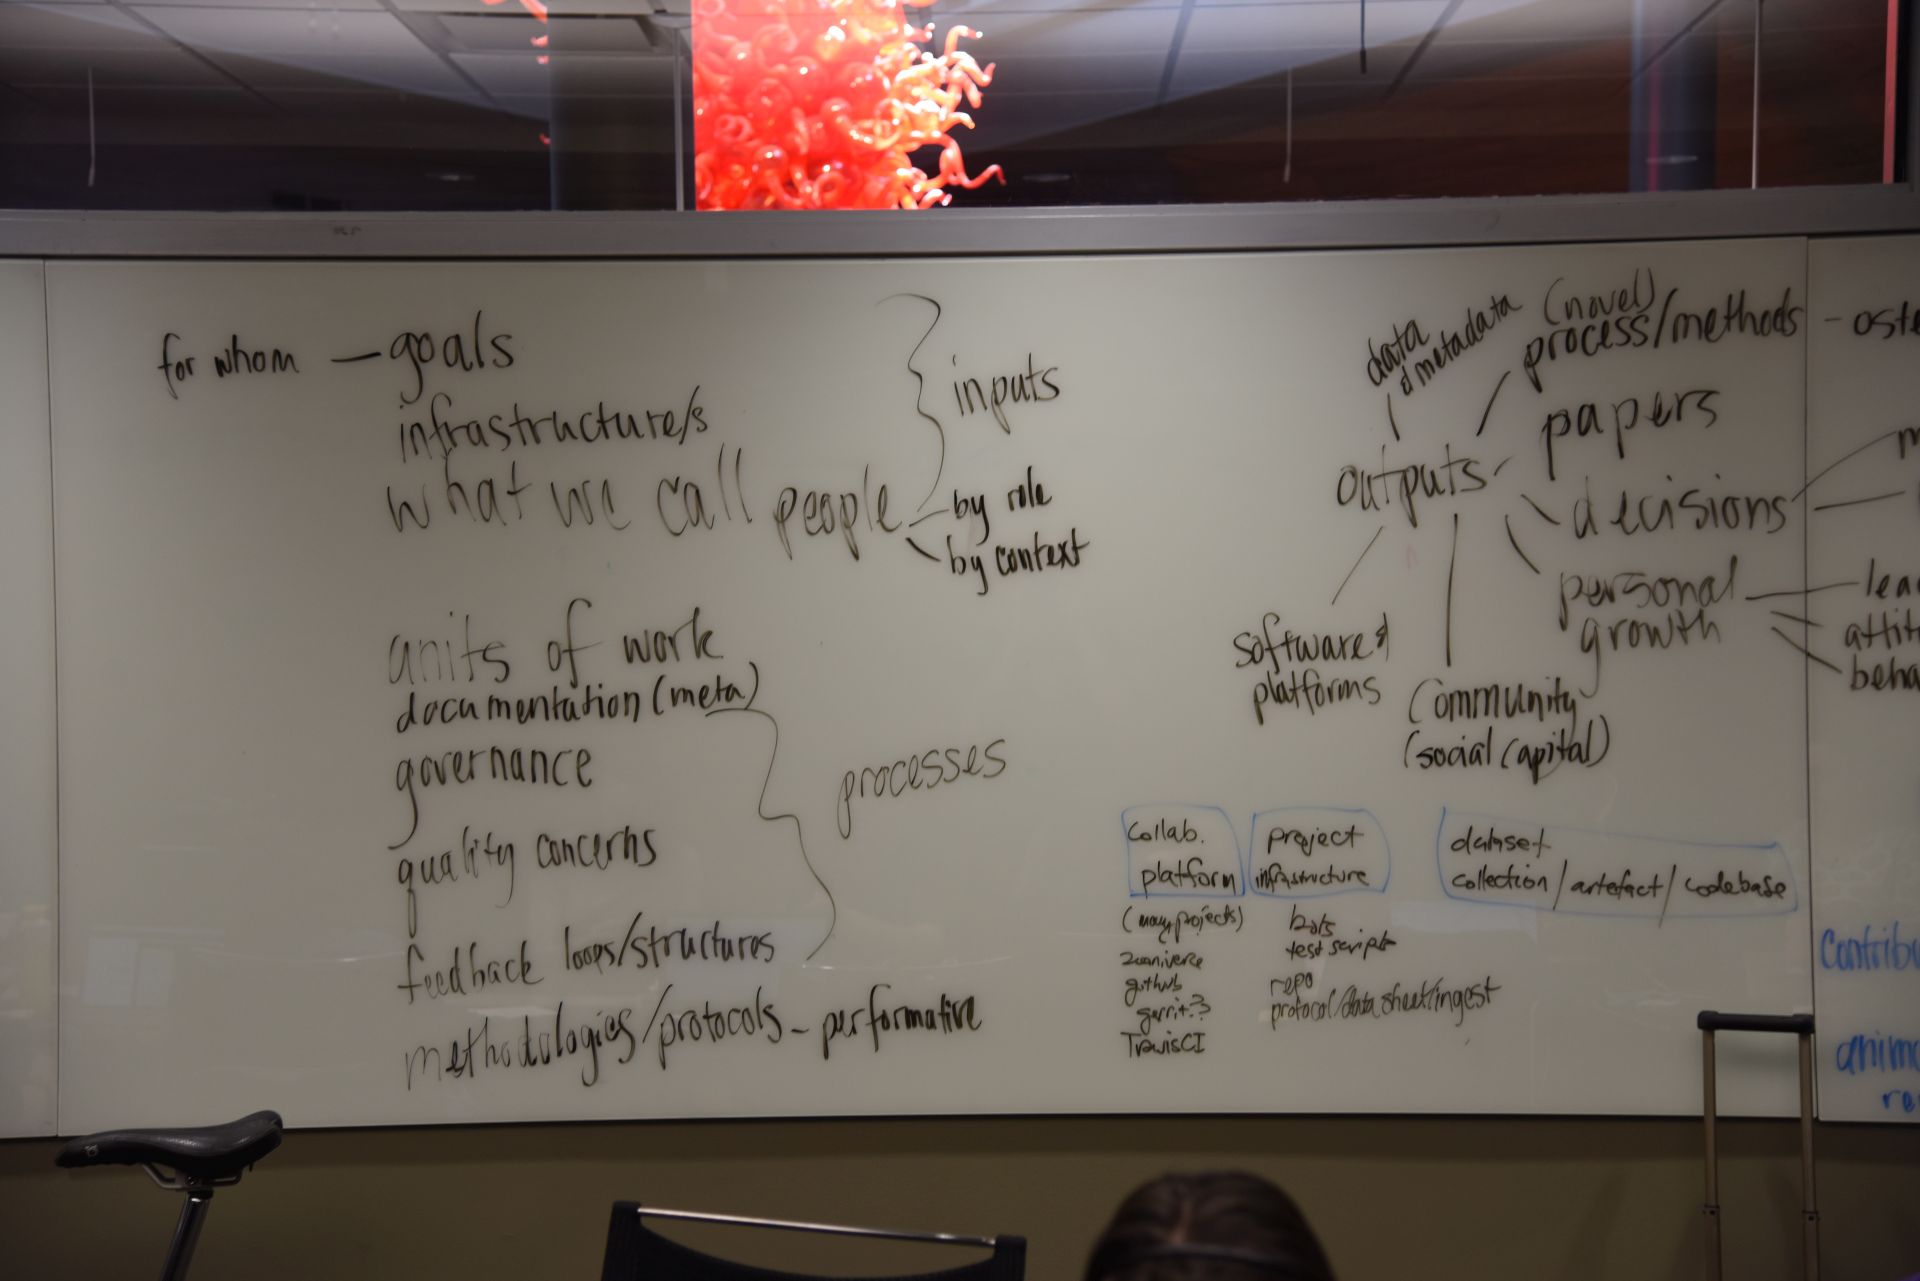 for whom — goals
infrastructure/s
what we call people
by role
by context
inputs
units of work
documentation (meta)
governance
quality concerns
feedback loops/structures
methodologies/protocols - performative
processes
data
& metadata
(novel)
process/methods -
papers
outputs
decisions
personal
growth
software &
platforms
Community
(social capital)
collab.
platform
(many projects)
zooniverse
github
gerrit??
TravisCI
project
infrastructure
bots
test scripts
repo
protocol/data sheet/ingest
dataset
collection/artefact/codebase